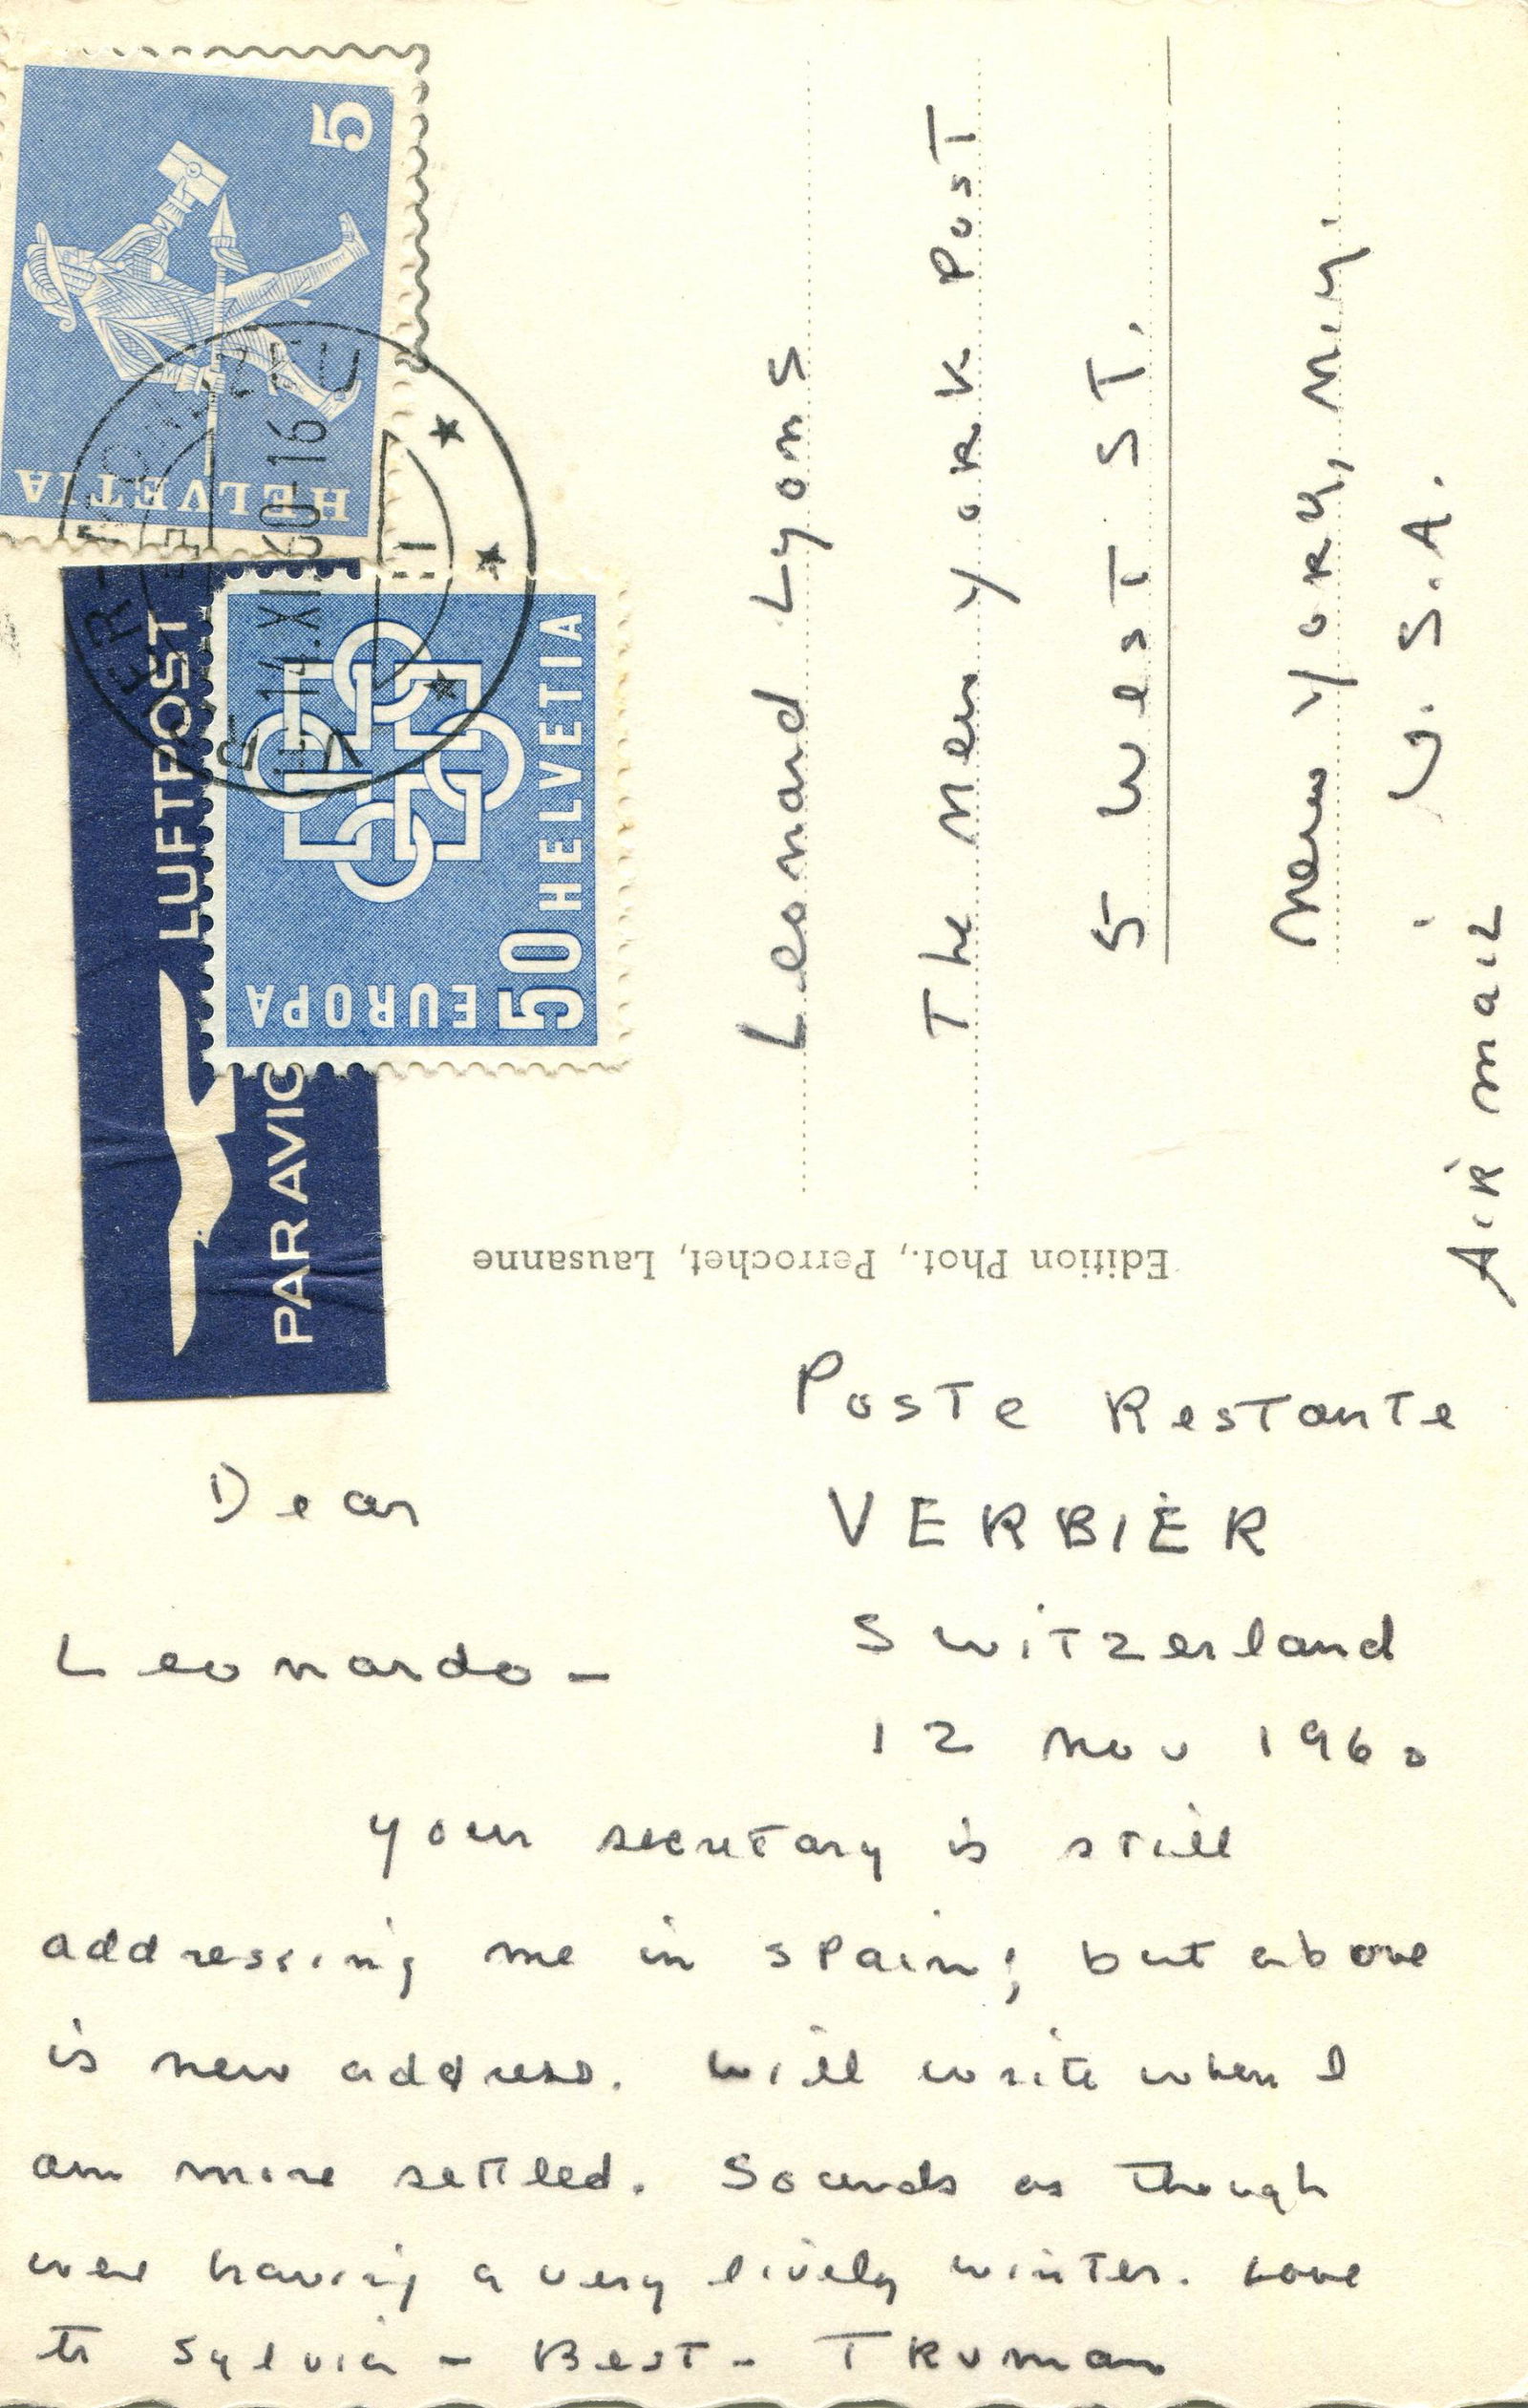 HELVETIA
5
LUFTPOST
PAR AVIO
EUROPA
50 HELVETIA
14.XI.60-16
Leonard Lyons
The New York Post
5 West ST.
New York, N.Y.
U.S.A.
Air mail
Edition Phot., Perrochet, Lausanne
Poste Restante
VERBIER
Switzerland
12 Nov 1960
Dear
Leonardo -
your secretary is still
addressing me in Spain; but above
is new address. Will write when I
am more settled. Sounds as though
were having a very lively winter. Love
to Sylvia - Best - Truman